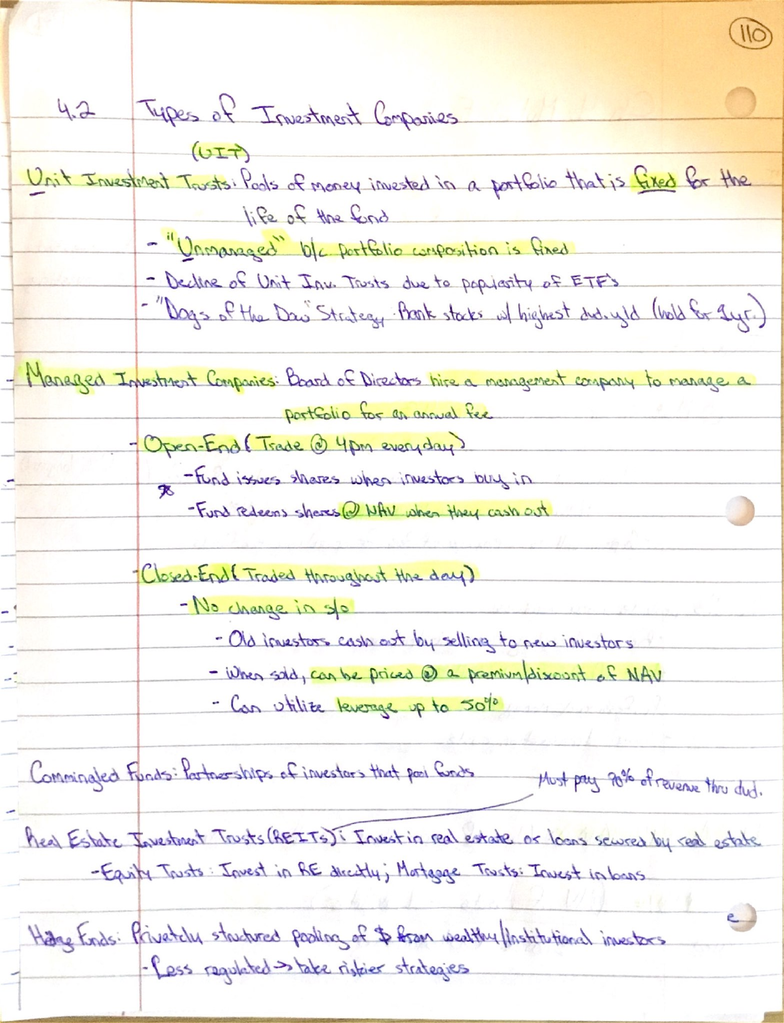 110
4.2 Types of Investment Companies
(UIT)
Unit Investment Trusts: Pools of money invested in a portfolio that is fixed for the
life of the fund
- "Unmanaged" b/c portfolio composition is fixed
- Decline of Unit Inv. Trusts due to popularity of ETFs
- "Dogs of the Dow" Strategy - Rank stocks w/ highest dvd. yld (hold for 1yr.)
Managed Investment Companies: Board of Directors hire a management company to manage a
portfolio for an annual fee
- Open-End (Trade @ 4pm everyday)
- Fund issues shares when investors buy in
- Fund redeems shares @ NAV when they cash out
- Closed-End (Traded throughout the day)
- No change in s/o
- Old investors cash out by selling to new investors
- When sold, can be priced @ a premium/discount of NAV
- Can utilize leverage up to 50%
Commingled Funds: Partnerships of investors that pool funds
Must pay 90% of revenue thru dvd.
Real Estate Investment Trusts (REITs): Invest in real estate or loans secured by real estate
- Equity Trusts: Invest in RE directly; Mortgage Trusts: Invest in loans
Hedge Funds: Privately structured pooling of $ from wealthy/Institutional investors
- Less regulated → take riskier strategies